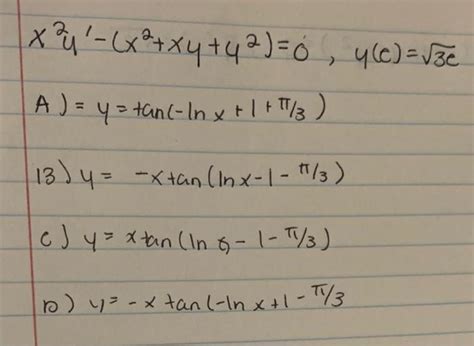 x²y' - (x² + xy + y²) = 0 , y(e) = √3e
A) = y = tan(-ln x + 1 + π/3)
B) y = -x tan(ln x - 1 - π/3)
C) y = x tan(ln x - 1 - π/3)
D) y = -x tan(-ln x + 1 - π/3